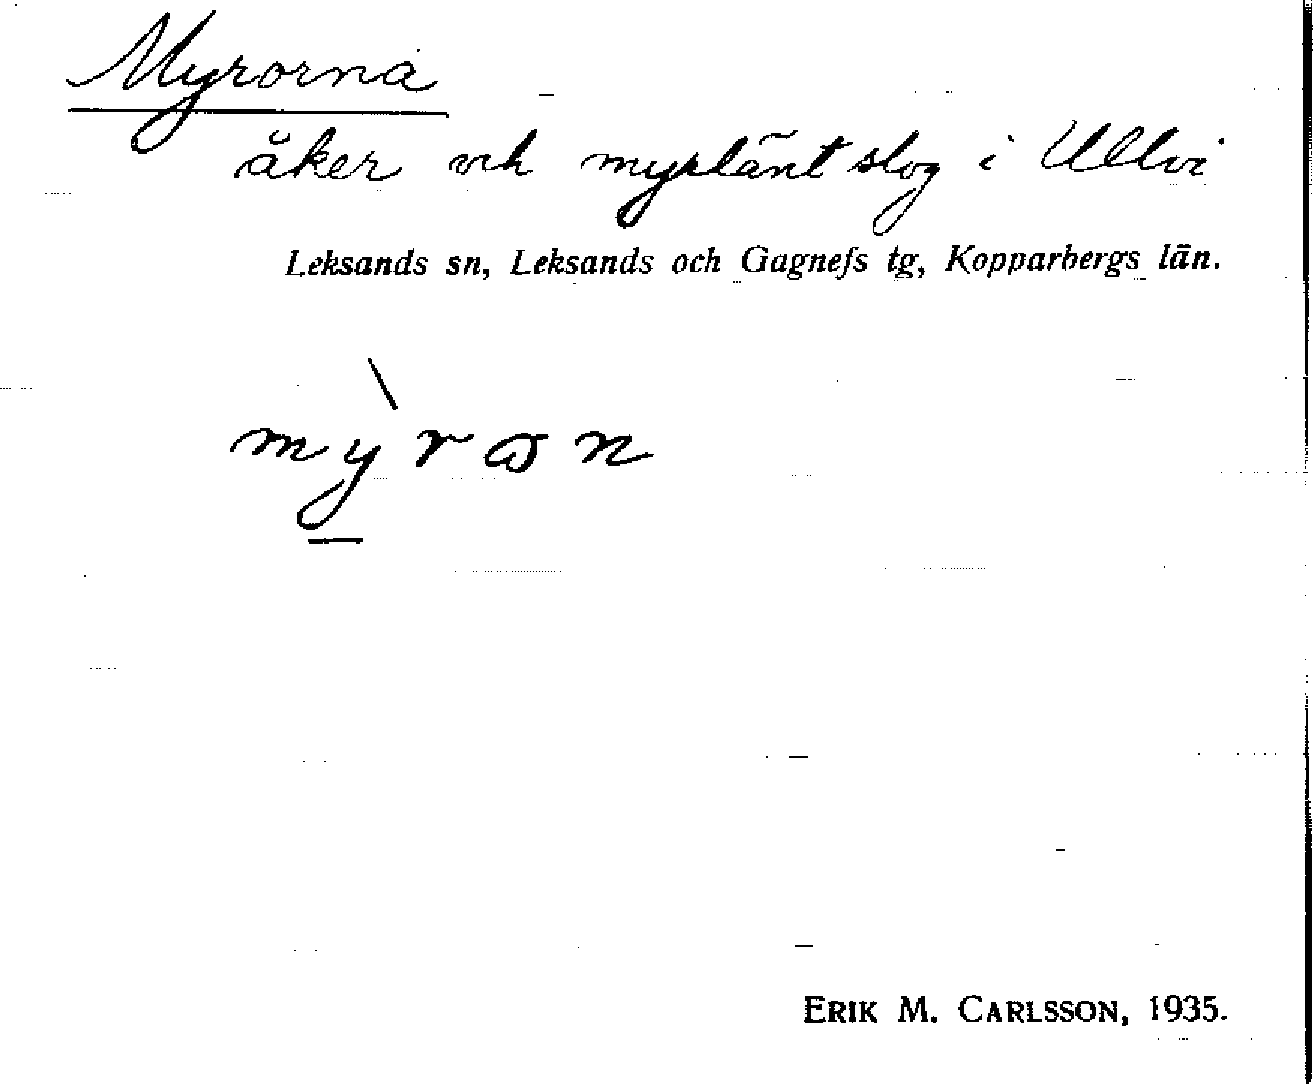 Myrorna
åker och myrlänt slog i Ullvi
Leksands sn, Leksands och Gagnefs tg, Kopparbergs län.
ERIK M. CARLSSON, 1935.